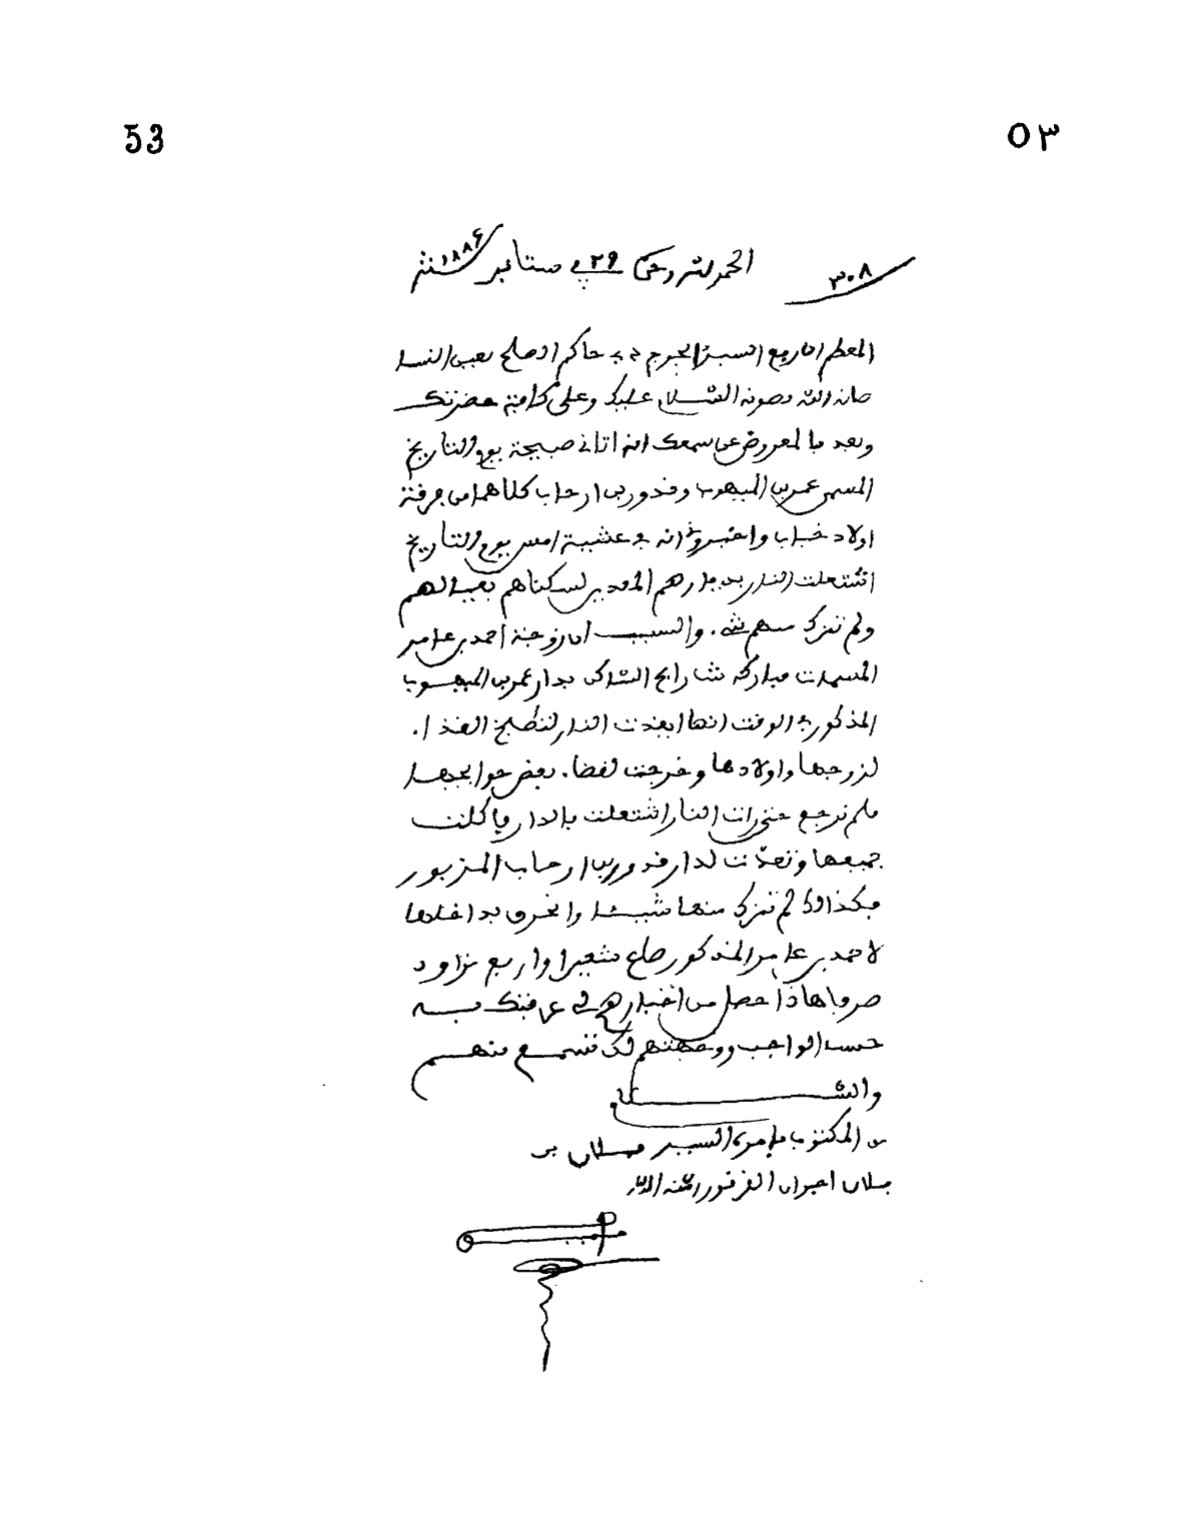 53
٥٣
٣٠٨
الحمد لله وحده ٢٩ في ستانبر سنة ١٨٨٦
المعظم الارفع السيد حاكم الصلح
صانه الله السلام عليك وعلى كافة حضرتك
وبعد فالمعروض عن سمعك انه اتاني صبيحة يوم التاريخ
المسمى عمر بن وقدور بن ارحاب كلاهما من فرقة
اولاد خباب واخبروني انه في عشية امس يوم التاريخ
اشتعلت النار بديارهم المعدين لسكناهم بعيالهم
ولم تترك منهم شيء. والسبب ان زوجة احمد بن عامر
المسمات مباركة الساكن بدار عمر بن
المذكور في الوقت انها اوقدت النار لتطبخ الغذا.
لزوجها واولادها وخرجت لقضا. بعض حوايجها
فلم ترجع حتى رات النار اشتعلت بالدار واكلت
جميعها وتعدت لدار قدور بن ارحاب المزبور
فكذالك لم تترك منها شيئا وانحرق بداخلها
لاحمد بن عامر المذكور صاع شعيرا واربع دورو
صرفا هاذا ما حصل من اخبارهم لي عرفتك به
حسب الواجب ووجهتهم لك تسمع منهم
والسلام
من المكتوب بامره السيد فلان بن
فلان امنه الله